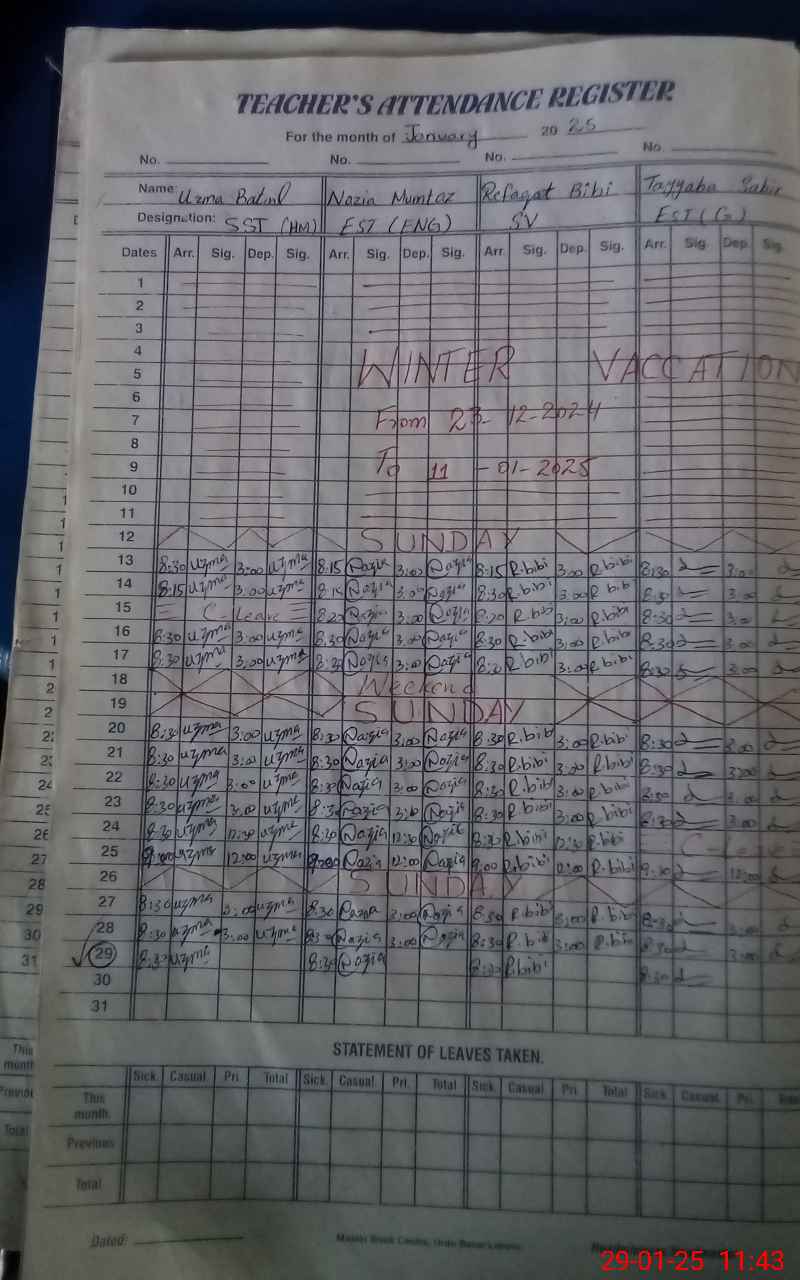 TEACHER'S ATTENDANCE REGISTER
For the month of January 20 25
No. No. No. No.
Name: Uzma Batul Nazia Mumtaz Refaqat Bibi Tayyaba Sabir
Designation: SST (HM) EST (ENG) SV EST (G)
Dates Arr. Sig. Dep. Sig. Arr. Sig. Dep. Sig. Arr. Sig. Dep. Sig. Arr. Sig. Dep. Sig.
1
2
3
4
5 WINTER VACCATION
6
7 From 23-12-2024
8
9 To 11-01-2025
10
11
12 SUNDAY
13 8:30 uzma 3:00 uzma 8:15 Nazia 3:00 Nazia 8:15 R.bibi 3:00 R bibi 8:30 3:00
14 8:15 uzma 3:00 uzma 8:15 Nazia 3:00 Nazia 8:30 R.bibi 3:00 R bib 8:30 3:00
15 C-Leave 8:20 Nazia 3:00 Nazia 8:20 R.bib 3:00 R bibi 8:30 3:00
16 8:30 uzma 3:00 uzma 8:30 Nazia 3:00 Nazia 8:30 R.bibi 3:00 R bibi 8:30 3:00
17 8:30 uzma 3:00 uzma 8:30 Nazia 3:00 Nazia R.bibi 3:00 R bibi 8:30 3:00
18 Weekend
19 SUNDAY
20 8:30 uzma 3:00 uzma 8:30 Nazia 3:00 Nazia 8:30 R.bibi 3:00 R.bibi 8:30 3:00
21 8:30 uzma 3:00 uzma 8:30 Nazia 3:00 Nazia 8:30 R.bibi 3:00 R.bibi 8:30 3:00
22 8:30 uzma 3:00 uzma 8:30 Nazia 3:00 Nazia 8:30 R.bibi 3:00 R.bibi 8:30 3:00
23 8:30 uzma 3:00 uzma 8:30 Nazia 3:00 Nazia 8:30 R.bibi 3:00 R.bibi 8:30 3:00
24 8:30 uzma 12:30 uzma 8:30 Nazia 12:30 Nazia 8:30 R.bibi 12:30 R.bibi C-Leave
25 9:00 uzma 12:00 uzma 9:00 Nazia 12:00 Nazia 9:00 R.bibi 12:00 R.bibi 12:00
26 SUNDAY
27 8:30 uzma 3:00 uzma 8:30 Nazia 3:00 Nazia 8:30 R.bibi 3:00 R.bibi 8:30 3:00
28 8:30 uzma 3:00 uzma 8:30 Nazia 3:00 Nazia 8:30 R.bib 3:00 R.bib 8:30 3:00
29 8:30 uzma 8:30 Nazia 8:30 R.bibi 8:30
30
31
STATEMENT OF LEAVES TAKEN.
Sick. Casual. Pri. Total Sick. Casual. Pri. Total Sick. Casual. Pri. Total Sick. Casual. Pri. Total
This month.
Previous
Total
Dated:
29-01-25 11:43